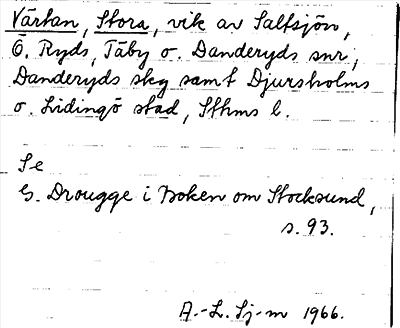 Värtan, Stora, vik av Saltsjön,
Ö. Ryds, Täby o. Danderyds snr,
Danderyds skg samt Djursholms
o. Lidingö stad, Sthms l.
Se
G. Drougge i Boken om Stocksund,
s. 93.
A.-L. Sj-m 1966.